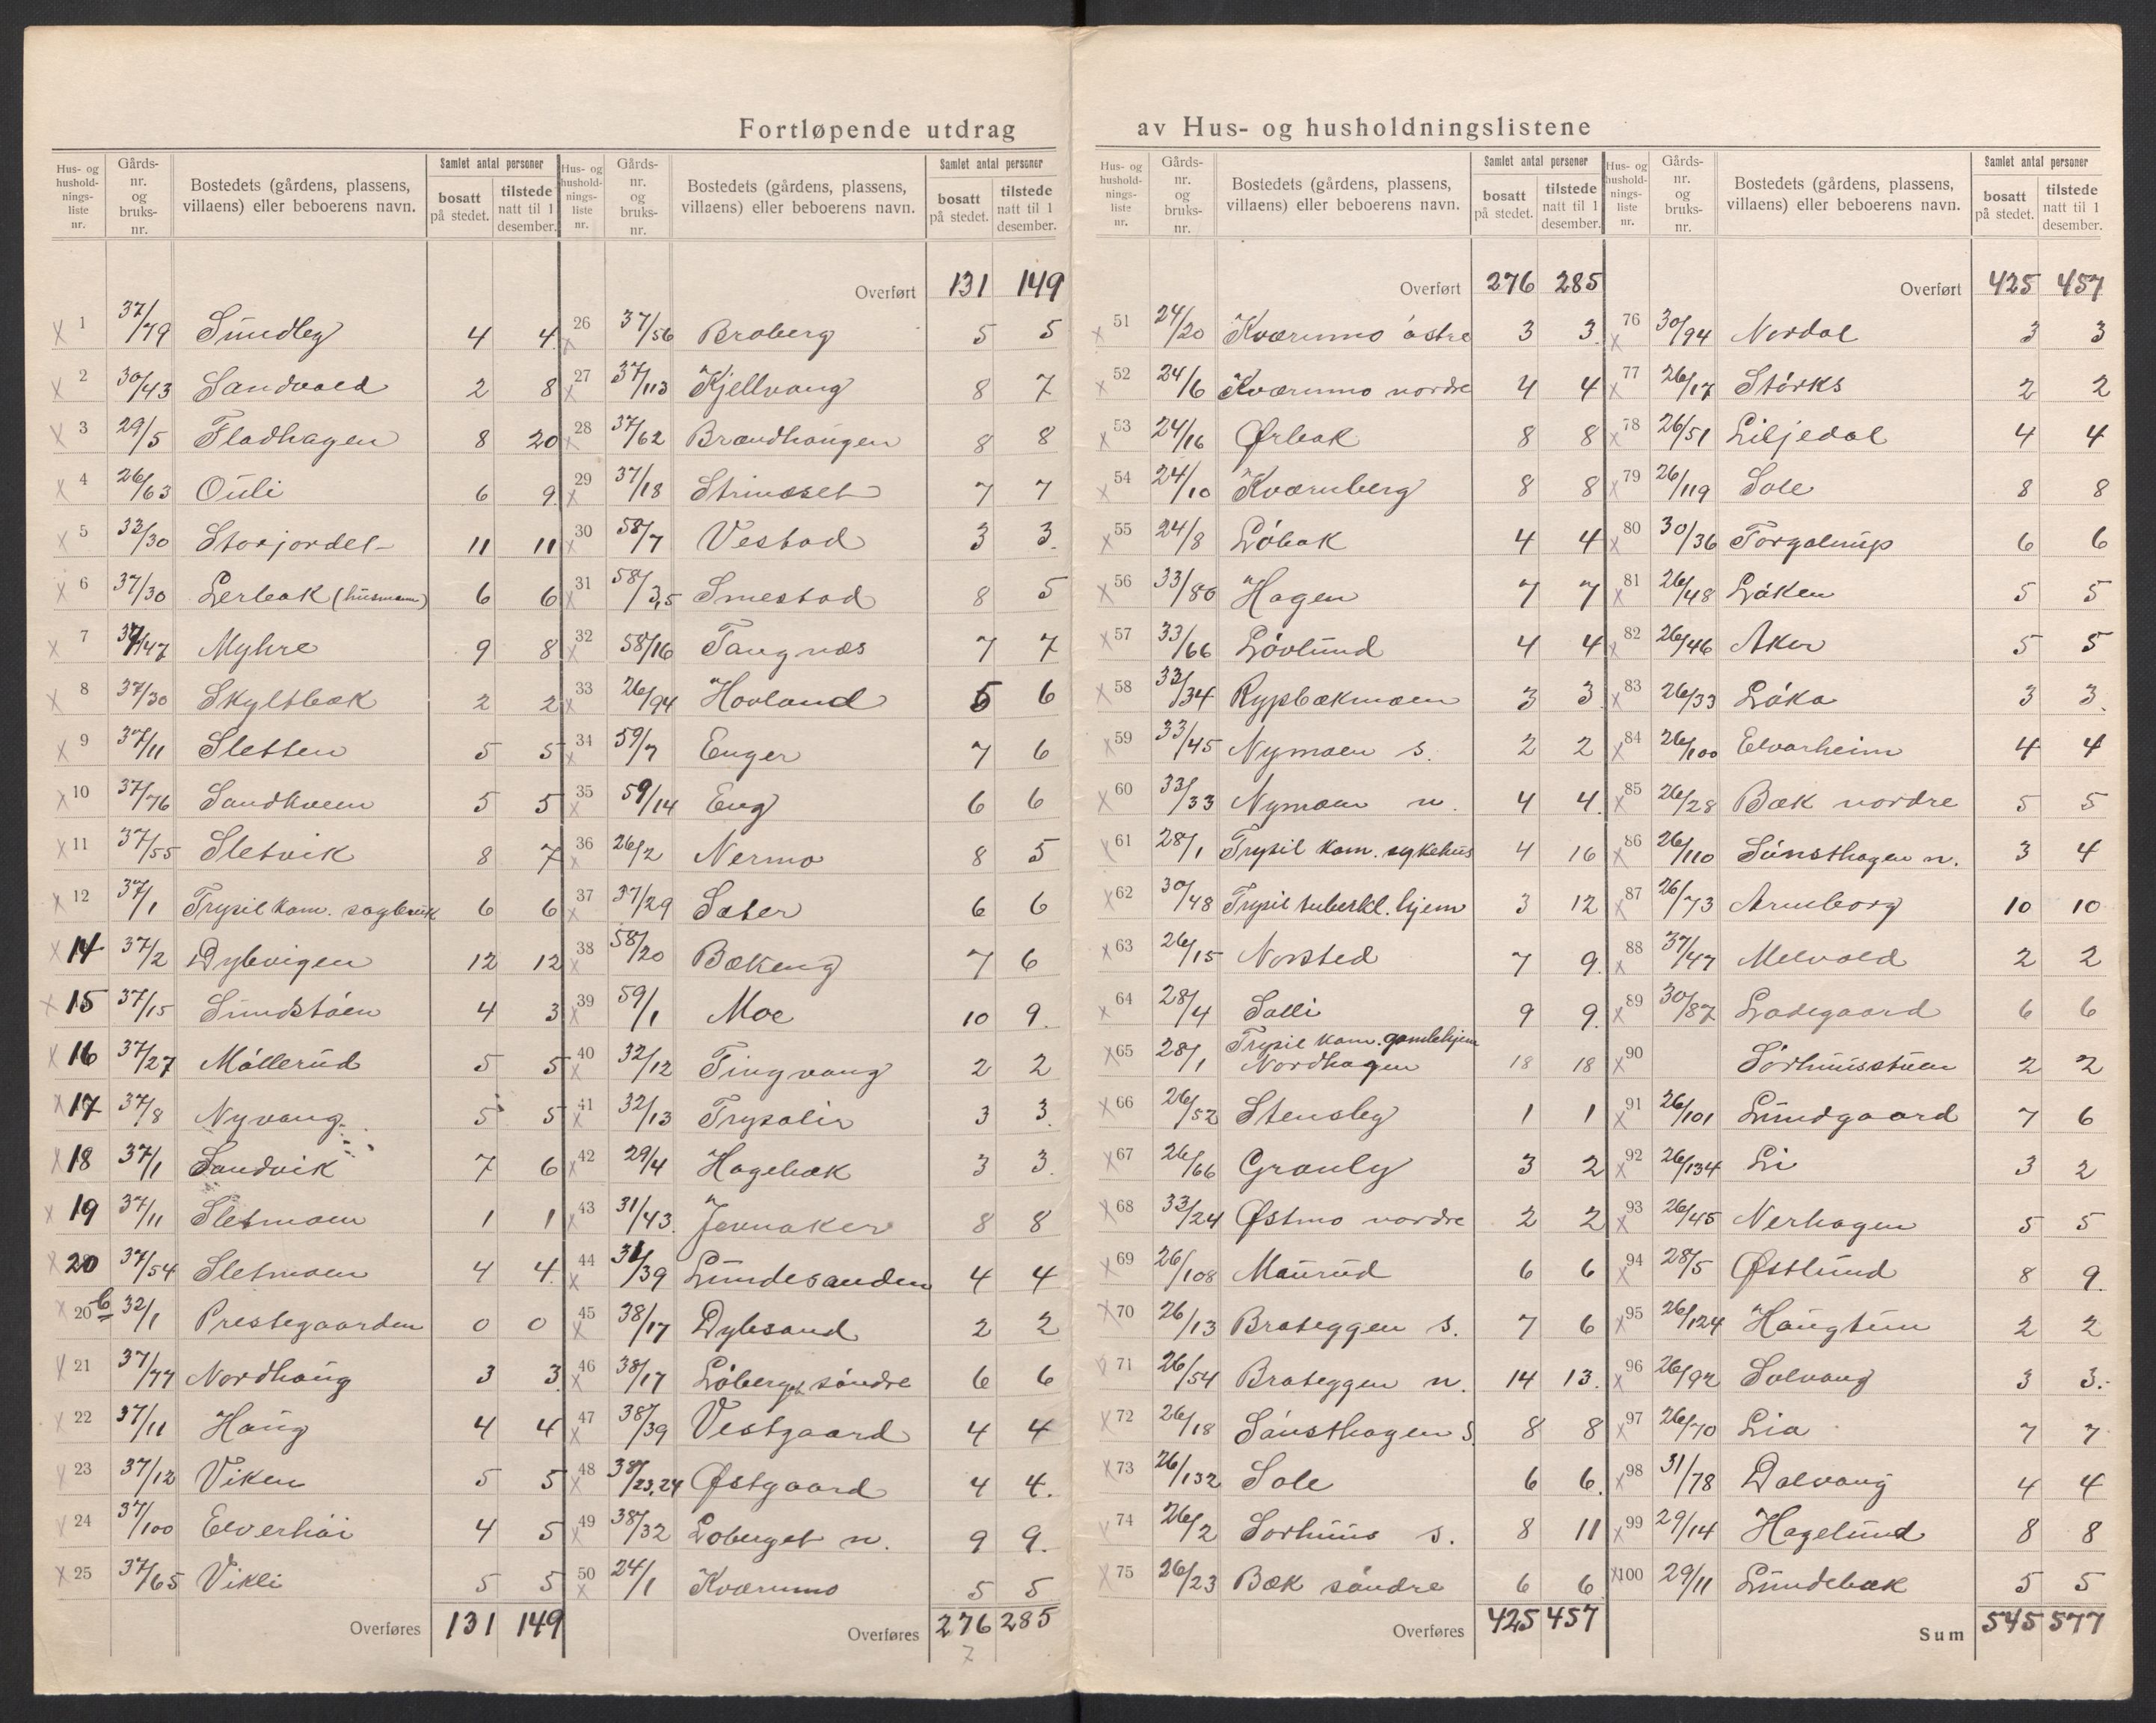 Fortløpende utdrag av Hus- og husholdningslistene
Hus- og husholdnings- liste nr. | Gårds- nr. og bruks- nr. | Bostedets (gårdens, plassens, villaens) eller beboerens navn. | Samlet antal personer | bosatt på stedet. | tilstede natt til 1 desember.
1 37/79 Sundby 4 4
2 30/43 Sandvold 2 8
3 29/5 Fladhagen 8 20
4 26/63 Ouli 6 9
5 33/30 Storjordet 11 11
6 37/30 Lerbak (husmann) 6 6
7 37/47 Myhre 9 8
8 37/30 Skyltbæk 2 2
9 37/11 Sletten 5 5
10 37/76 Sandkveen 5 5
11 37/55 Sletvik 8 7
12 37/1 Trysil kom. sagbruk 6 6
14 37/2 Dybvigen 12 12
15 37/15 Sundstøen 4 3
16 37/27 Møllerud 5 5
17 37/8 Nyvang 5 5
18 37/1 Sandvik 7 6
19 37/11 Sletmoen 1 1
20 37/54 Sletmoen 4 4
20 b 32/1 Prestegaarden 0 0
21 37/77 Nordhaug 3 3
22 37/11 Haug 4 4
23 37/12 Viken 5 5
24 37/100 Elverhøi 4 5
25 37/65 Vikli 5 5
Overføres 131 149
Hus- og husholdnings- liste nr. | Gårds- nr. og bruks- nr. | Bostedets (gårdens, plassens, villaens) eller beboerens navn. | Samlet antal personer | bosatt på stedet. | tilstede natt til 1 desember.
Overført 131 149
26 37/56 Broberg 5 5
27 37/113 Kjellvang 8 7
28 37/62 Brandhaugen 8 8
29 37/18 Strinæset 7 7
30 58/7 Vestad 3 3
31 58/3,5 Smestad 8 5
32 58/16 Tangnæs 7 7
33 26/94 Hovland 6 6
34 59/7 Enger 7 6
35 59/14 Eng 6 6
36 26/2 Nermo 8 5
37 37/29 Sæter 6 6
38 58/20 Bækeng 7 6
39 59/1 Moe 10 9
40 32/12 Tingvang 2 2
41 32/13 Trysalir 3 3
42 29/4 Hagebæk 3 3
43 31/43 Jevnaker 8 8
44 31/39 Lundesanden 4 4
45 38/17 Dybsand 2 2
46 38/17 Løberget søndre 6 6
47 38/39 Vestgaard 4 4
48 38/23,24 Østgaard 4 4
49 38/32 Løberget n. 9 9
50 24/1 Kværnmo 5 5
Overføres 276 285
7
Hus- og husholdnings- liste nr. | Gårds- nr. og bruks- nr. | Bostedets (gårdens, plassens, villaens) eller beboerens navn. | Samlet antal personer | bosatt på stedet. | tilstede natt til 1 desember.
Overført 276 285
51 24/20 Kværnmo østre 3 3
52 24/6 Kværnmo nordre 4 4
53 24/16 Ørbak 8 8
54 24/10 Kværnberg 8 8
55 24/8 Løbak 4 4
56 33/80 Hagen 7 7
57 33/66 Løvlund 4 4
58 33/34 Rypbækmoen 3 3
59 33/45 Nymoen s. 2 2
60 33/33 Nymoen n. 4 4
61 28/1 Trysil kom. sykehus 4 16
62 30/48 Trysil tuberkl. hjem 3 12
63 26/15 Norsted 7 9
64 28/4 Solli 9 9
65 28/1 Trysil kom. gamlehjem
Nordhagen 18 18
66 26/52 Stensby 1 1
67 26/66 Granly 3 2
68 33/24 Østmo nordre 2 2
69 26/108 Maurud 6 6
70 26/13 Brateggen s. 7 6
71 26/54 Brateggen n. 14 13
72 26/18 Sønsthagen s. 8 8
73 26/132 Sole 6 6
74 26/2 Sørhuus s. 8 11
75 26/23 Bæk søndre 6 6
Overføres 425 457
Hus- og husholdnings- liste nr. | Gårds- nr. og bruks- nr. | Bostedets (gårdens, plassens, villaens) eller beboerens navn. | Samlet antal personer | bosatt på stedet. | tilstede natt til 1 desember.
Overført 425 457
76 30/94 Nordal 3 3
77 26/17 Størks 2 2
78 26/51 Liljedal 4 4
79 26/119 Sole 8 8
80 30/36 Torgalsup 6 6
81 26/48 Løken 5 5
82 26/46 Aker 5 5
83 26/33 Løka 3 3
84 26/100 Elvarheim 4 4
85 26/28 Bæk nordre 5 5
86 26/110 Sønsthagen n. 3 4
87 26/73 Arneborg 10 10
88 37/47 Melvold 2 2
89 30/87 Ladegaard 6 6
90 Sørhuusstuen 2 2
91 26/101 Lundgaard 7 6
92 26/134 Li 3 2
93 26/45 Nerhagen 5 5
94 28/5 Østlund 8 9
95 26/124 Haugtun 2 2
96 26/92 Solvang 3 3
97 26/70 Lia 7 7
98 31/78 Dalvang 4 4
99 29/14 Hagelund 8 8
100 29/11 Lundebæk 5 5
Sum 545 577